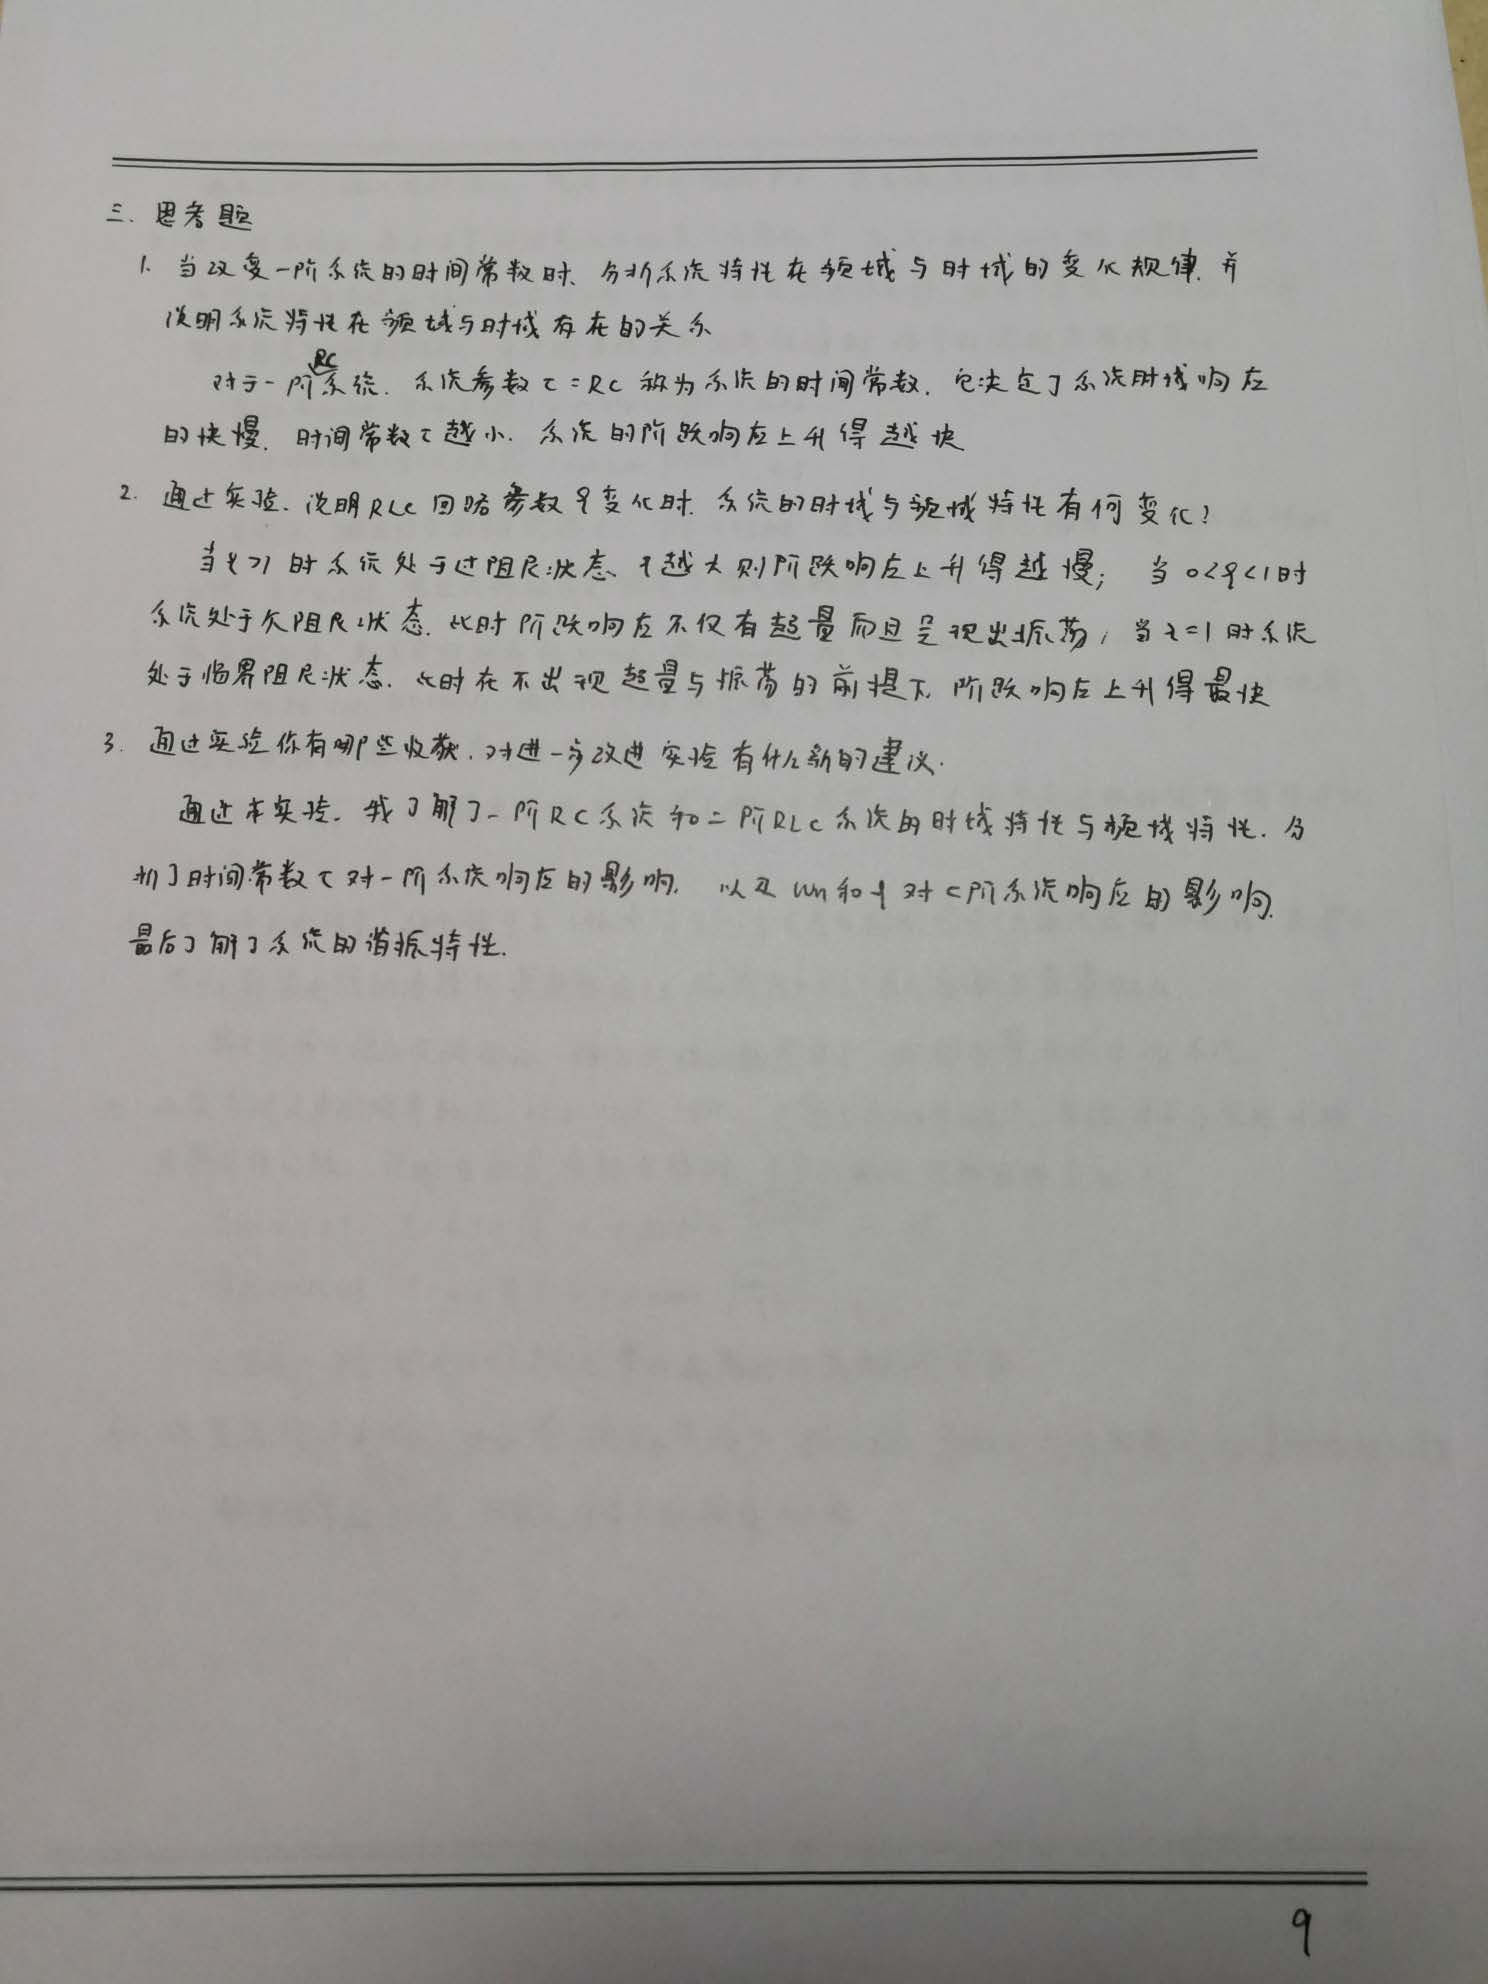 三、思考题
1. 当改变一阶系统的时间常数时、分析系统特性在频域与时域的变化规律.并
说明系统特性在频域与时域存在的关系
对于一阶RC系统.系统参数τ=RC称为系统的时间常数.它决定了系统时域响应
的快慢.时间常数τ越小.系统的阶跃响应上升得越快
2. 通过实验.说明RLC回路参数ξ变化时.系统的时域与频域特性有何变化?
当ξ>1时系统处于过阻尼状态、ξ越大则阶跃响应上升得越慢; 当0<ξ<1时
系统处于欠阻尼状态.此时阶跃响应不仅有超量而且呈现出振荡; 当ξ=1时系统
处于临界阻尼状态.此时在不出现超量与振荡的前提下.阶跃响应上升得最快
3. 通过实验你有哪些收获.对进一步改进实验有什么新的建议.
通过本实验.我了解了一阶RC系统和二阶RLC系统的时域特性与频域特性.分
析了时间常数τ对一阶系统响应的影响.以及ωn和ξ对二阶系统响应的影响.
最后了解了系统的谐振特性.
9